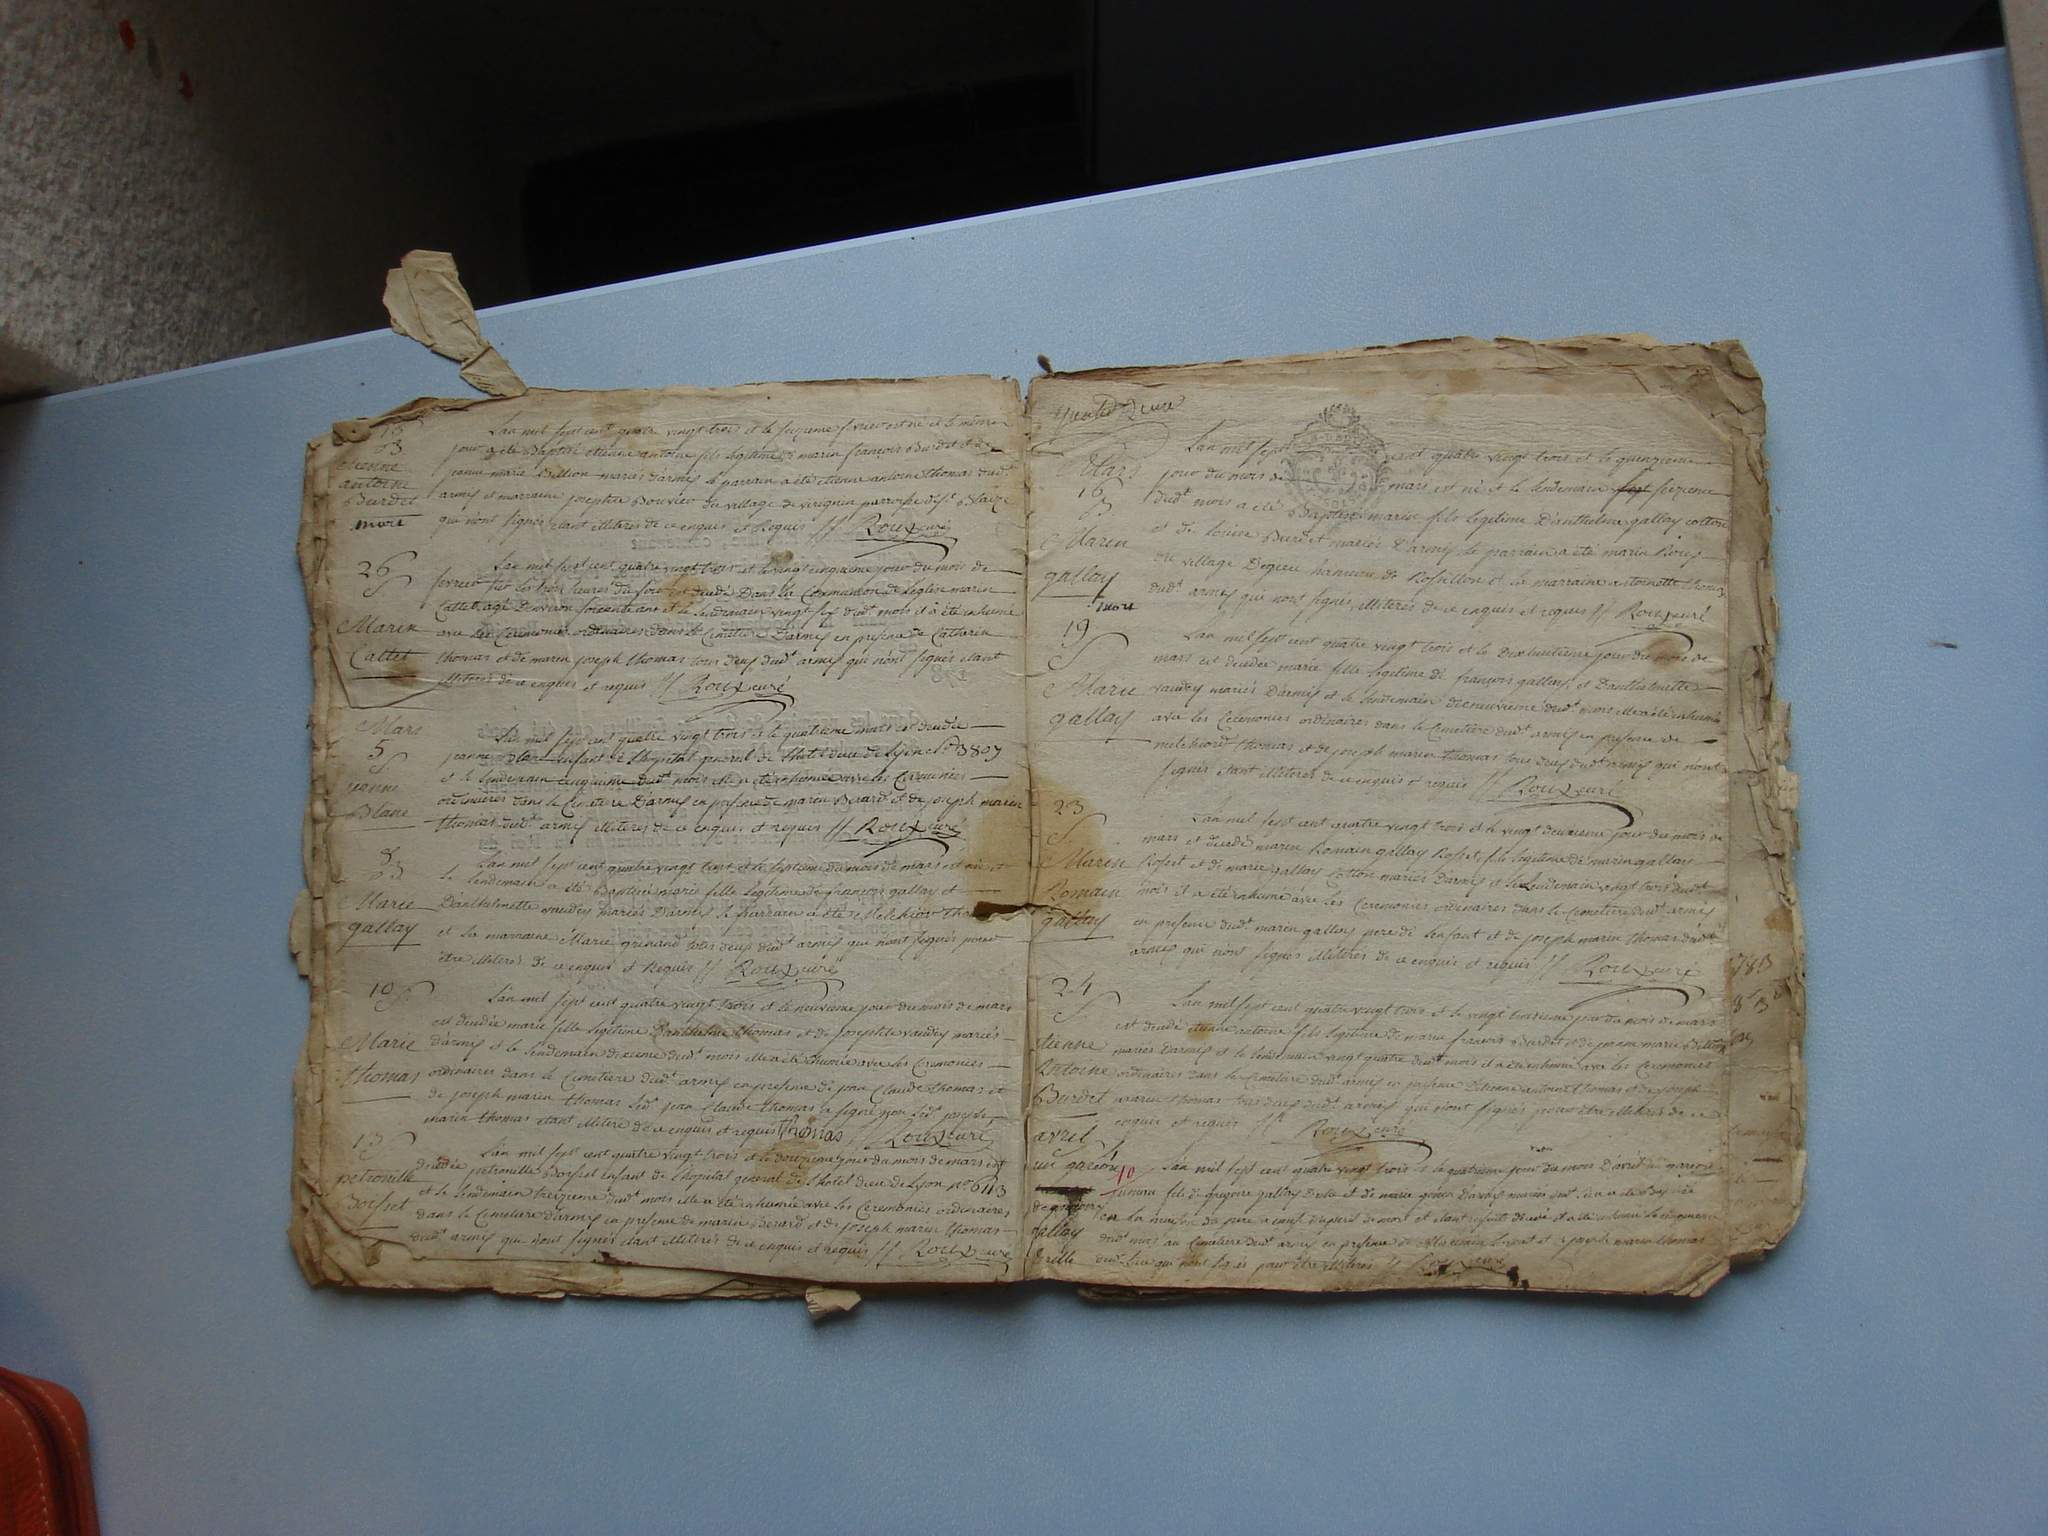 16
B
etienne
antoine
Burdet
mort
L'an mil sept cent quatre vingt trois et le seizieme fevrier est né et le même
jour a été Baptisé etienne antoine fils legitime de marin françois Burdet et de
jeanne marie Billion mariés d'armix le parrain a été etienne antoine thomas dudt
armix et marraine josephte Bouvier du village de virignin parroisse de st Blaize
qui n'ont signés etant illiterés de ce enquis et Requis // Roux curé
26
S
Marin
Cattet
L'an mil sept cent quatre vingt trois et le vingt cinquieme jour du mois de
fevrier sur les trois heures du soir est decedé Dans la Communion de l'eglise marin
Cattet agé d'environ soixente ans et le lendemain vingt six dudt mois il a été inhumé
avec les Ceremonies ordinaires dans le Cimetiere D'armix en presence de Catherin
thomas et de marin joseph thomas tous deux dudt armix qui n'ont signés etant
illiterés de ce enquis et requis // Roux curé
Mars
5
S
jeanne
Blanc
L'an mil sept cent quatre vingt trois et le quatrieme mars est decedée
jeanne Blanc enfant de l'hopital general de l'hotel dieu de Lyon No 3807
et le lendemain cinquieme dudt mois elle a été inhumée avec les Ceremonies
ordinaires dans le Cimetiere D'armix en presence de marin Berard et de joseph marin
thomas dudt armix illiterés de ce enquis et requis // Roux curé
8
B
Marie
gallay
L'an mil sept cent quatre vingt trois et le septieme du mois de mars est née et
le lendemain a été Baptisée marie fille legitime de françois gallay et
D'anthelmette vaudey mariés D'armix le parrain a été Melchior Thomas
et la marraine Marie grinand tous deux dudt armix qui n'ont signés pour
être illiterés de ce enquis et Requis // Roux curé
10
S
Marie
thomas
L'an mil sept cent quatre vingt trois et le neuvieme jour du mois de mars
est decedée marie fille legitime D'anthelme thomas et de josephte vaudey mariés
d'armix et le lendemain dixieme dudt mois elle a été inhumée avec les Ceremonies
ordinaires dans le Cimetiere dudt armix en presence de jean Claude thomas et
de joseph marin thomas ledt jean Claude thomas a signé non ledt joseph
marin thomas etant illiteré de ce enquis et requis Thomas // Roux curé
13
S
petronille
Boisset
L'an mil sept cent quatre vingt trois et le douzieme jour du mois de mars est
decedée petronille Boisset enfant de l'hopital general de l'hotel dieu de Lyon No 6113
et le lendemain treizieme dudt mois elle a été inhumée avec les Ceremonies ordinaires
dans le Cimetiere d'armix en presence de marin Berard et de joseph marin thomas
dudt armix qui n'ont signés etant illiterés de ce enquis et requis // Roux curé
Mars
16
B
Marin
gallay
mort
L'an mil sept cent quatre vingt trois et le quinzieme
jour du mois de mars est né et le lendemain seizieme
dudt mois a été Baptisé marin fils legitime D'anthelme gallay cotton
et de Burdet mariés D'armix le parrain a été marin Roux
du village hameau de Rossillon et la marraine antoinette thomas
dudt armix qui n'ont signés illiterés de ce enquis et requis // Roux curé
19
S
Marie
gallay
L'an mil sept cent quatre vingt trois et le Dixhuitieme jour du mois de
mars est decedée marie fille legitime de françois gallay et D'anthelmette
vaudey mariés D'armix et le lendemain dixneuvieme dudt mois elle a été inhumée
avec les Ceremonies ordinaires dans le Cimetiere dudt armix en presence de
melchior thomas et de joseph marin thomas tous deux dudt armix qui n'ont
signés etant illiterés de ce enquis et requis // Roux curé
23
S
Marin
Romain
gallay
L'an mil sept cent quatre vingt trois et le vingt deuxieme jour du mois de
mars est decedé marin Romain gallay Rosset fils legitime de marin gallay
Rosset et de marie gallay cotton mariés D'armix et le lendemain vingt trois dudt
mois il a été inhumé avec les Ceremonies ordinaires dans le Cimetiere dudt armix
en presence dudt marin gallay pere de l'enfant et de joseph marin thomas dudt
armix qui n'ont signés illiterés de ce enquis et requis // Roux curé
24
S
etienne
Antoine
Burdet
L'an mil sept cent quatre vingt trois et le vingt troisieme jour du mois de mars
est decedé etienne antoine fils legitime de marin françois Burdet et de jeanne marie Billion
mariés D'armix et le lendemain vingt quatre dudt mois il a été inhumé avec les Ceremonies
ordinaires dans le Cimetiere dudt armix en presence d'etienne antoine thomas et de joseph
marin thomas tous deux dudt armix qui n'ont signés pour être illiterés de ce
enquis et requis // Roux curé
avril
un garçon
10
de gregoire
gallay
L'an mil sept cent quatre vingt trois et le quatrieme jour du mois D'avril un garçon
fils de gregoire gallay et de marie mariés dudt lieu a été
en la maison du pere a cause du peril de mort et etant ensuite decedé il a été inhumé le cinquieme
dudt mois au Cimetiere dudt armix en presence de et joseph marin thomas
dudt lieu qui n'ont signés pour être illiterés // Roux curé
1783